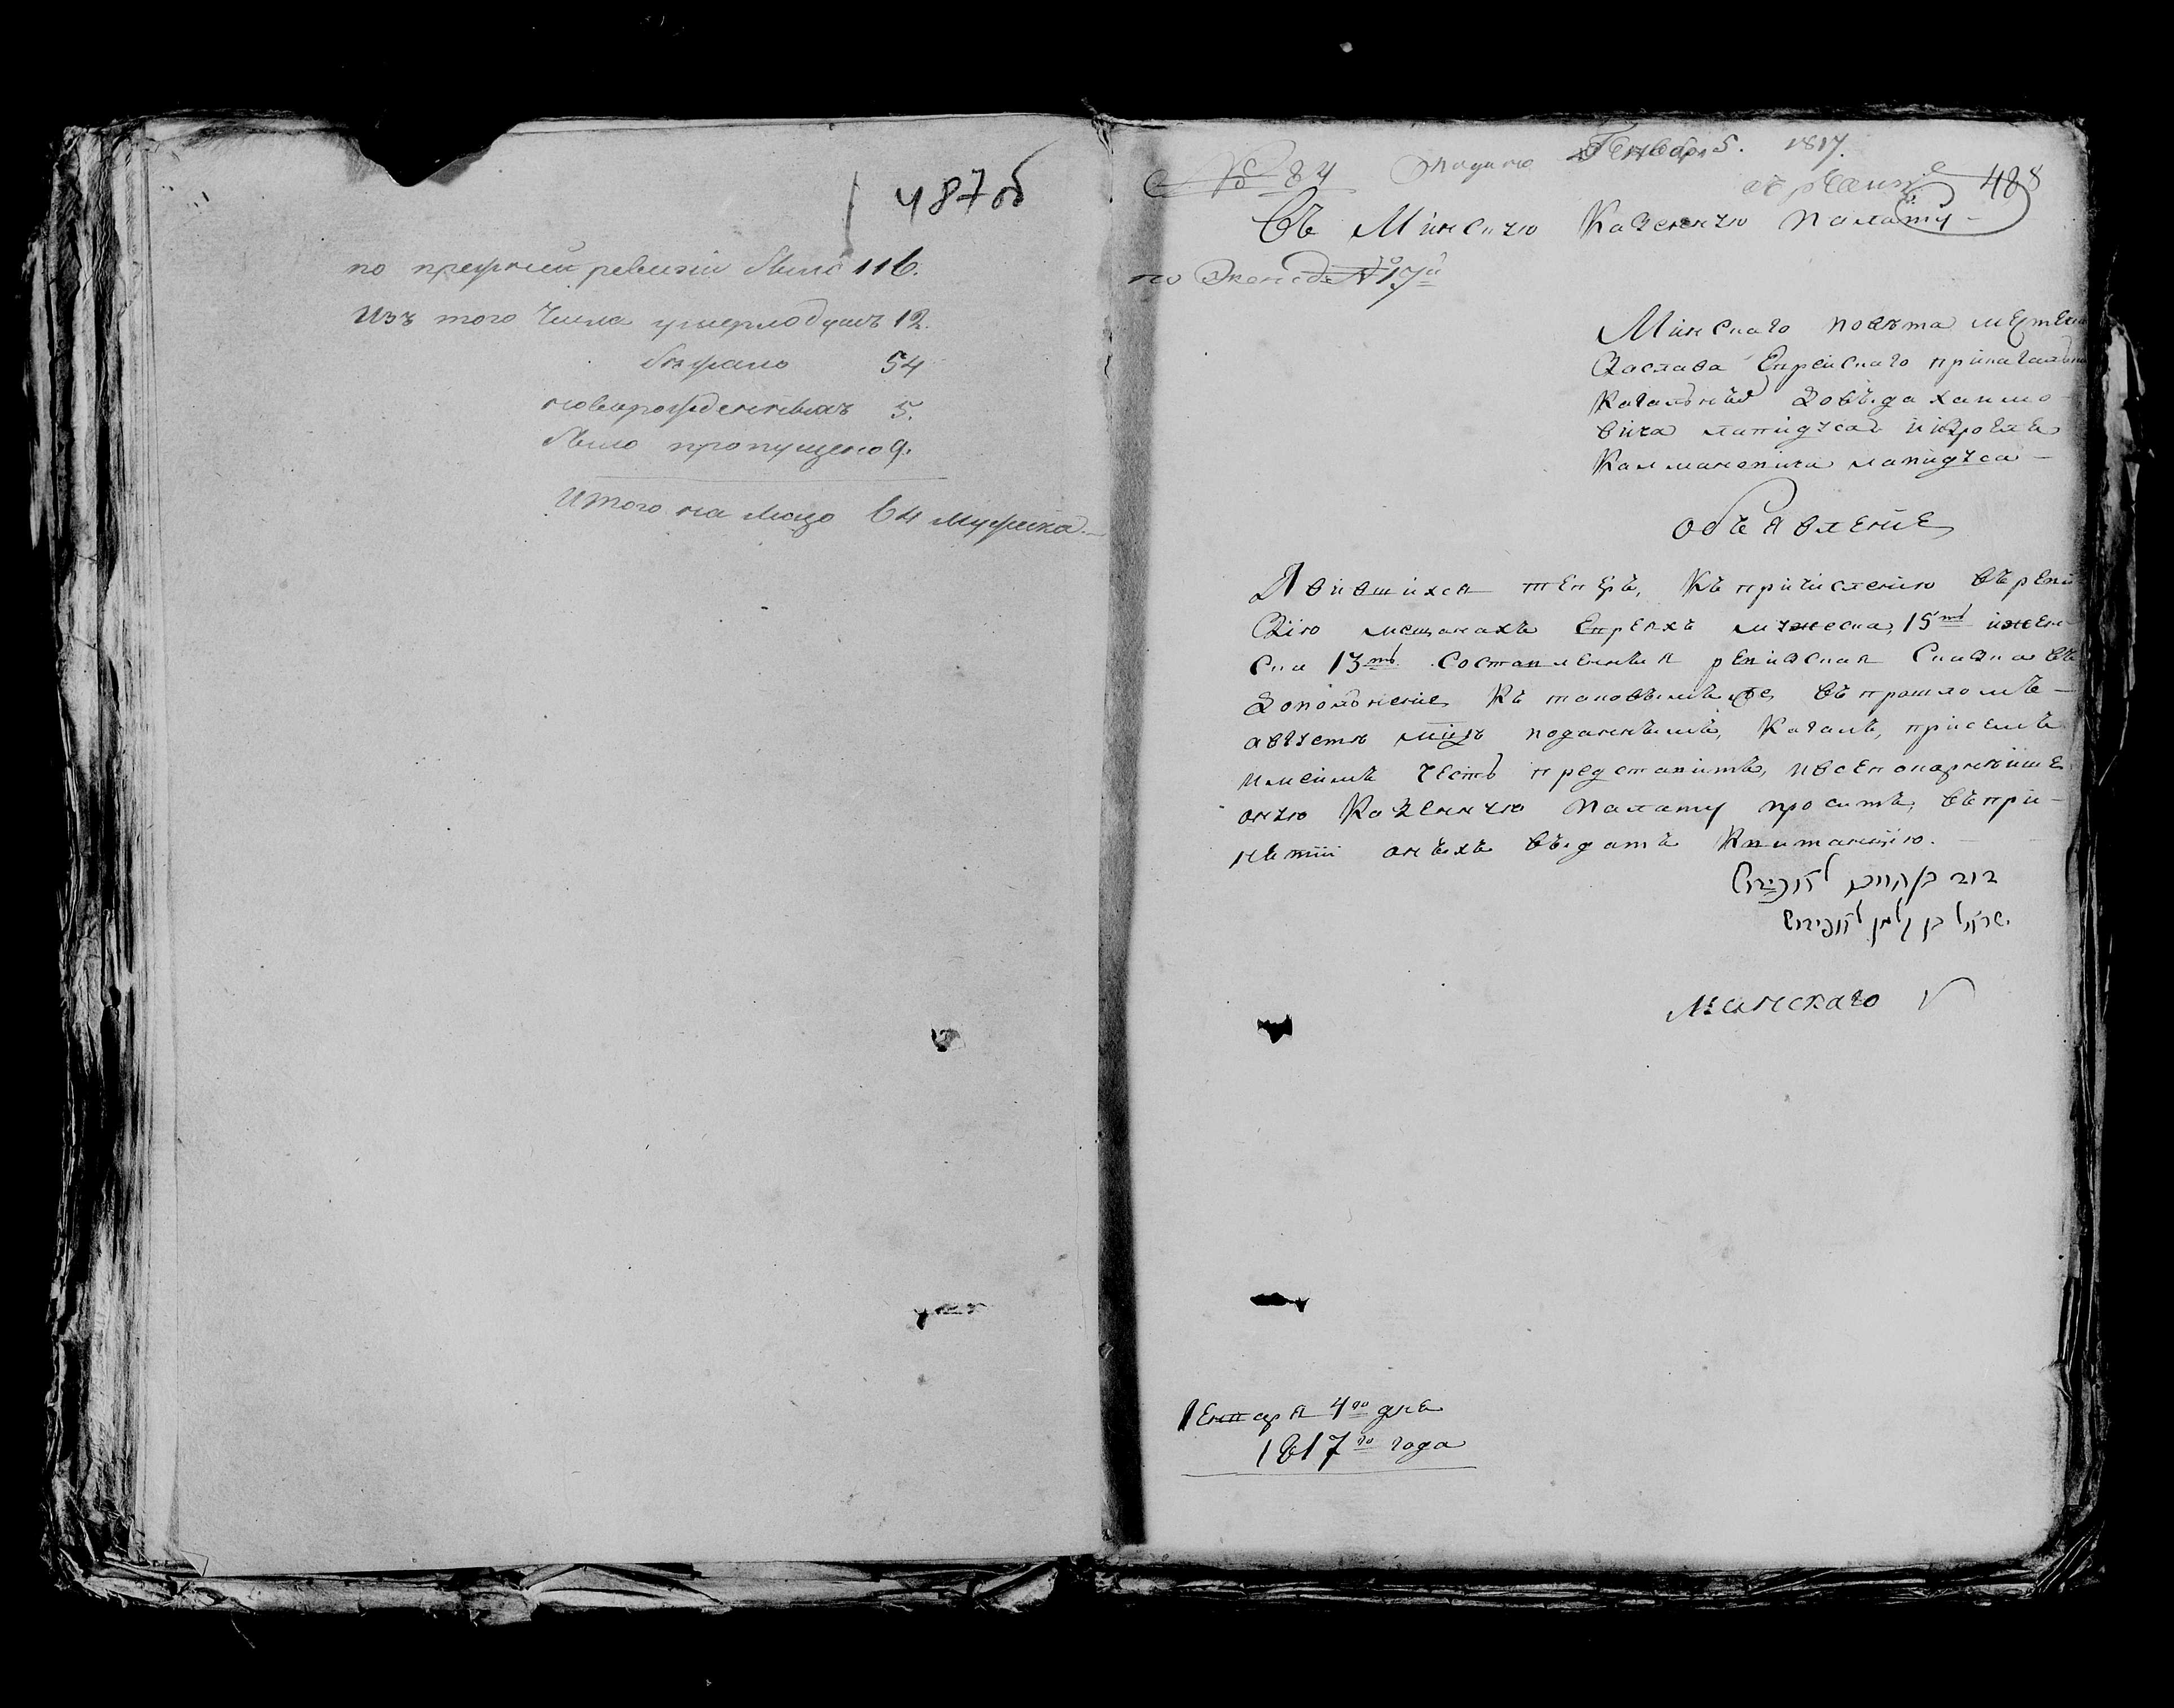 487 об
по прежней ревизіи было 116.
Изъ того числа умерло душъ 12.
выбыло 54
новорожденныхъ 5.
было пропущено 9.
Итого на лицо 64 мужеска
№ 84 Подано Генваря 5. 1817.
488
Въ Минскую Казенную Палату
по
Минскаго повѣта местечка
Заслава Еврейскаго прикагалка
Кагальныхъ Хаимо
вича лапидуса и
Калмановича лапидуса
объявленіе
Явившихся теперь, къ причисленію въ реви
зію мещанахъ Евреяхъ мужеска, 15ть и жен
ска 13ть составленная ревизская сказка въ
дополненіе къ таковымъ же въ прошломъ
августѣ м̃цѣ поданнымъ, Кагалъ, присемъ
имеимъ честь представить, и всепокорнѣйше
оную Казенную Палату просить, въ при
нятіи оныхъ выдать Квитанцію.
דוב בן חיים לאפידוס
ישראל בן קלמן לאפידוס
Минскаго
Генваря 4го дня
1817го года